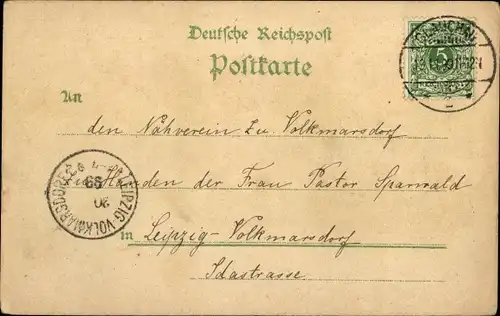 Deutsche Reichspost
Postkarte
An
den Nähverein zu Volkmarsdorf
zu Händen der Frau Pastor Sparwald
in Leipzig-Volkmarsdorf
Idastrasse
5
LEIPZIG-VOLKMARSDORF